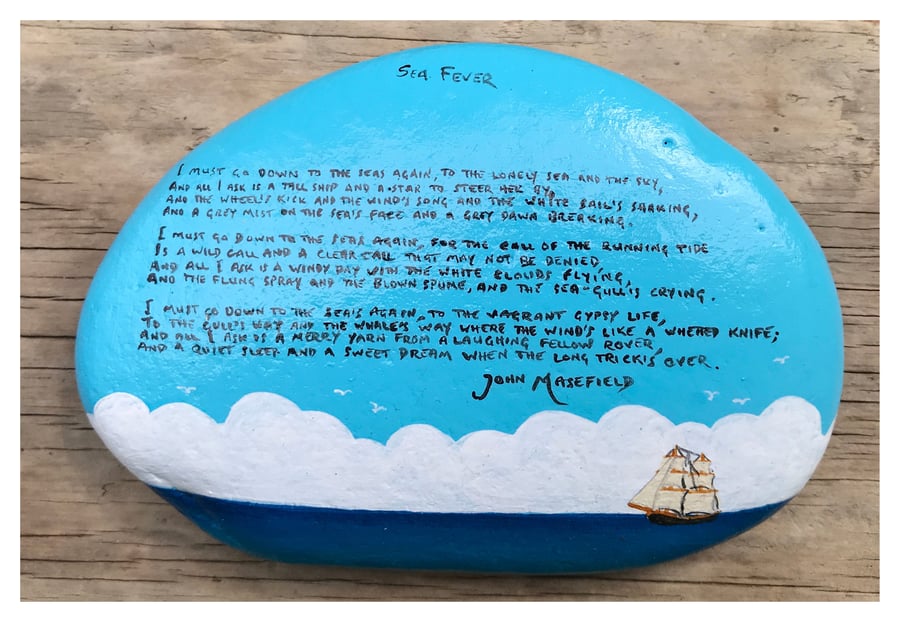 SEA FEVER
I MUST GO DOWN TO THE SEAS AGAIN, TO THE LONELY SEA AND THE SKY,
AND ALL I ASK IS A TALL SHIP AND A STAR TO STEER HER BY,
AND THE WHEEL'S KICK AND THE WIND'S SONG AND THE WHITE SAIL'S SHAKING,
AND A GREY MIST ON THE SEA'S FACE AND A GREY DAWN BREAKING.
I MUST GO DOWN TO THE SEAS AGAIN, FOR THE CALL OF THE RUNNING TIDE
IS A WILD CALL AND A CLEAR CALL THAT MAY NOT BE DENIED
AND ALL I ASK IS A WINDY DAY WITH THE WHITE CLOUDS FLYING,
AND THE FLUNG SPRAY AND THE BLOWN SPUME, AND THE SEA-GULL'S CRYING.
I MUST GO DOWN TO THE SEA'S AGAIN, TO THE VAGRANT GYPSY LIFE,
TO THE GULL'S WAY AND THE WHALE'S WAY WHERE THE WIND'S LIKE A WHETED KNIFE;
AND ALL I ASK IS A MERRY YARN FROM A LAUGHING FELLOW ROVER,
AND A QUIET SLEEP AND A SWEET DREAM WHEN THE LONG TRICK'S OVER.
JOHN MASEFIELD